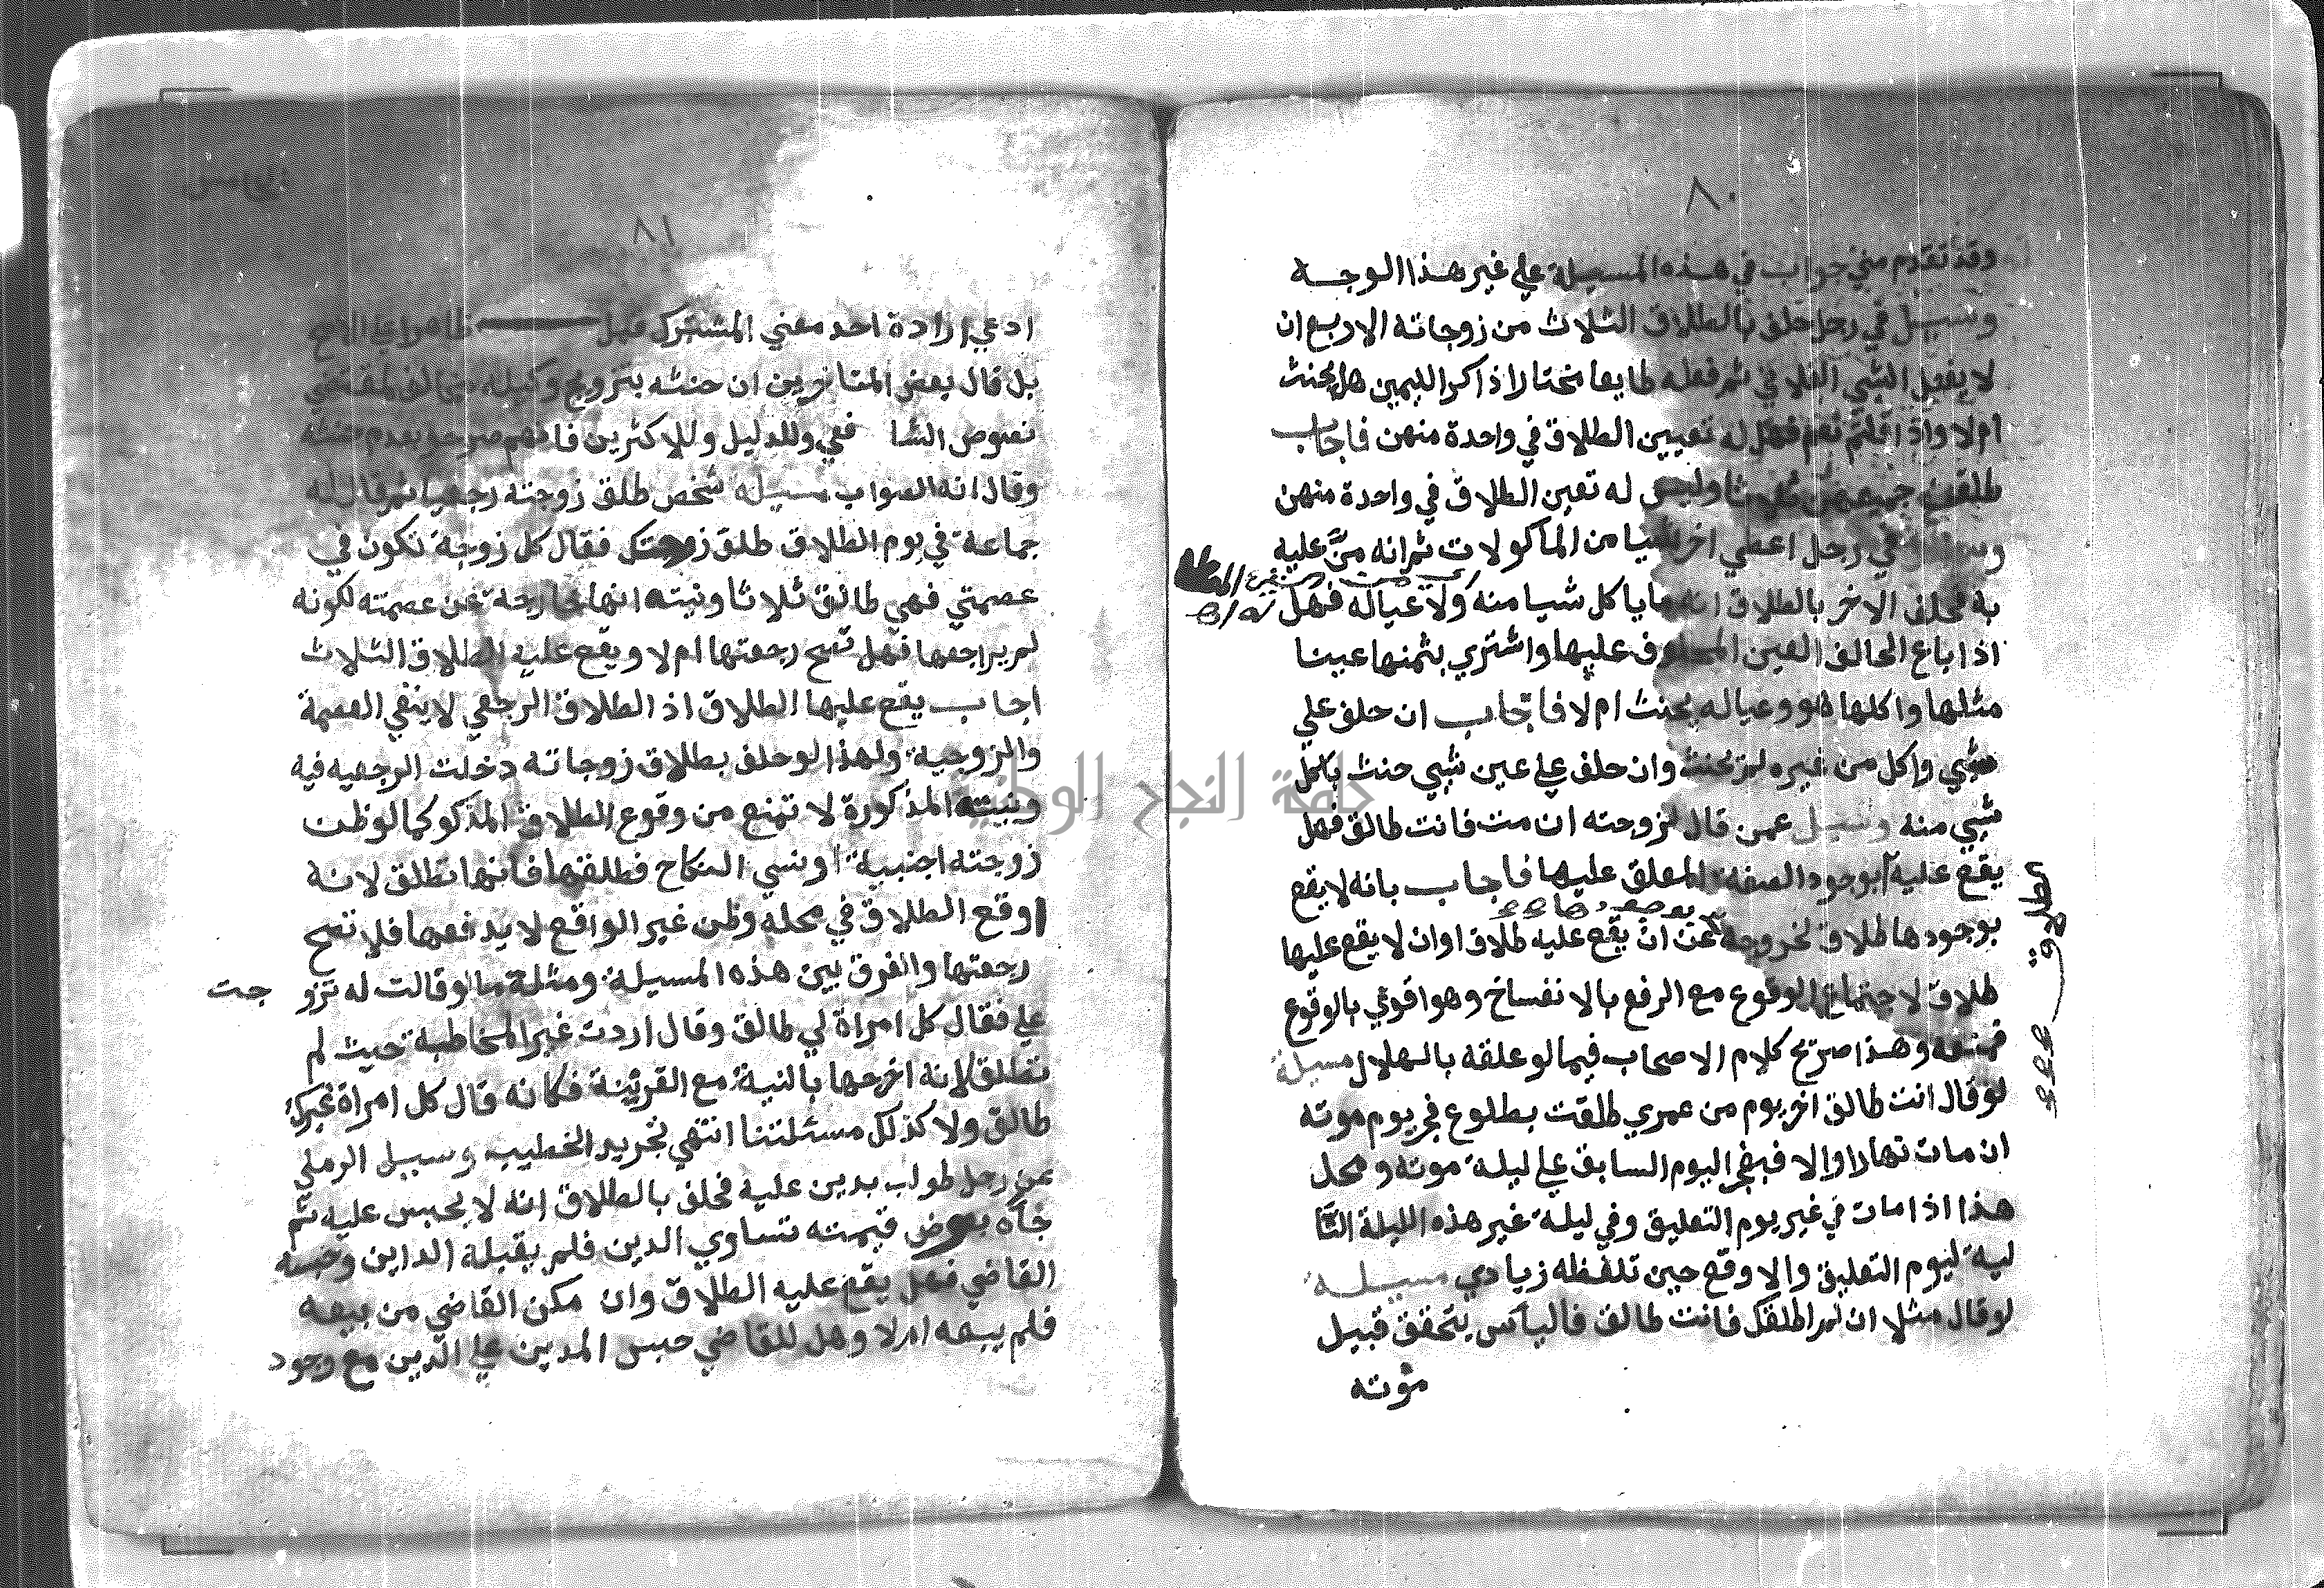 ٨٠
وقد تقدم مني جواب في هذه المسيلة علي غير هذا الوجه
وسيل في رجل حلف بالطلاق الثلاث من زوجاته الاربع ان
لا يفعل الشي الفلاني ثم فعله طايعا مختارا ذاكرا لليمين هل يحنث
ام لا واذا قلتم نعم فهل له تعيين الطلاق في واحدة منهن فاجاب
طلقت جميعهن ثلاثا وليس له تعين الطلاق في واحدة منهن
في رجل اعطي اخر شيا من الماكولات ثم انه منَّ عليه
به فحلف الاخر بالطلاق انه ما ياكل شيا منه ولا عياله فهل
اذا باع الحالف العين المحلوف عليها واشتري بثمنها عينا
مثلها واكلها هو وعياله يحنث ام لا فاجاب ان حلف علي
شي واكل من غيره لم يحنث وان حلف علي عين شي حنث باكل
شي منه وسيل عمن قال لزوجته ان مت فانت طالق فهل
يقع عليه بوجود الصفة المعلق عليها فاجاب بانه لا يقع
الطلاق
بوجودها طلاق لخروجه عن ان يقع عليه طلاق او ان لا يقع عليها
طلاق لاجتماع الوقوع مع الرفع بالانفساخ وهو اقوي بالوقوع
فمنعه وهذا صريح كلام الاصحاب فيما لو علقه بالهلال مسيلة
لو قال انت طالق اخر يوم من عمري طلقت بطلوع فجر يوم موته
ان مات نهارا والا فبفجر اليوم السابق علي ليلة موته ومحل
هذا اذا مات في غير يوم التعليق وفي ليلة غير هذه الليلة التا
لية ليوم التعليق والا وقع حين تلفظه زيادي مسيلة
لو قال مثلا ان لم اطلقك فانت طالق فالياس يتحقق قبيل
موته
٨١
ادعي ارادة احد معني المشترك قبل ظاهرا
بل قال بعض المتاخرين ان حنثه بتزويج وكيله مخالف لمقتضي
نصوص الشا فعي وللدليل وللاكثرين فانهم صرحو بعدم حنثه
وقال انه الصواب مسيله شخص طلق زوجته رجعيا ثم قال له
جماعة في يوم الطلاق طلق زوجتك فقال كل زوجة تكون في
عصمتي فهي طالق ثلاثا ونيته انها خارجة عن عصمته لكونه
لم يراجعها فهل تصح رجعتها ام لا ويقع عليه الطلاق الثلاث
اجاب يقع عليها الطلاق اذ الطلاق الرجعي لا ينفي العصمة
والزوجية ولهذا لو حلف بطلاق زوجاته دخلت الرجعيه فيه
ونيته المذكورة لا تمنع من وقوع الطلاق المذكو كما لو ظن
زوجته اجنبية او نسي النكاح فطلقها فانها تطلق لانه
اوقع الطلاق في محله وظن غير الواقع لا يدفعها فلا تصح
رجعتها والفرق بين هذه المسيلة ومثله ما لو قالت له تزو جت
علي فقال كل امراة لي طالق وقال اردت غير المخاطبة حيث لم
تطلق لانه اخرجها بالنية مع القرينة فكانه قال كل امراة غيرك
طالق ولا كذلك مسئلتنا انتهي تجريد الخطيب وسيل الرملي
عن رجل طولب بدين عليه فحلف بالطلاق انه لا يحبس عليه ثم
جاه بعوض قيمته تساوي الدين فلم يقبله الداين وحبسه
القاضي فهل يقع عليه الطلاق وان مكن القاضي من بيعه
فلم يبعه ام لا وهل للقاضي حبس المدين علي الدين مع وجود
جامعة النجاح الوطنية